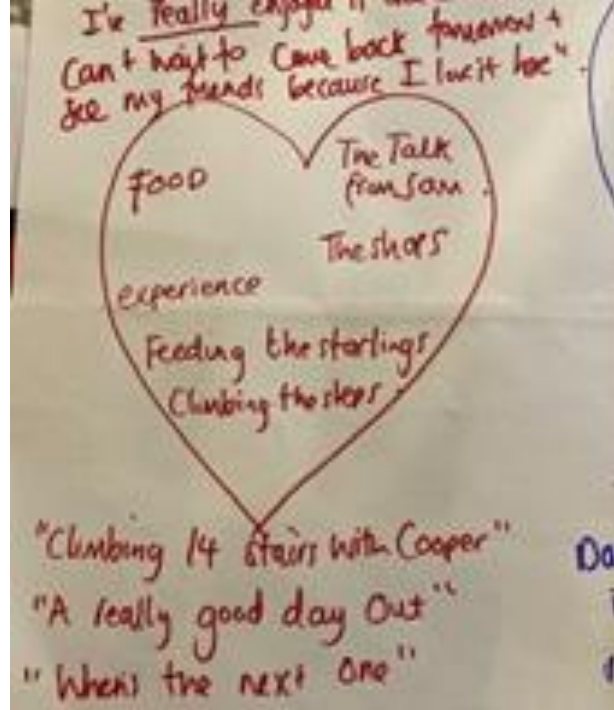 I've really enjoyed it
Can't wait to come back tomorrow &
see my friends because I love it here".
FOOD
The Talk
from Sam.
The shops
experience
Feeding the starlings
Climbing the steps.
"Climbing 14 stairs with Cooper"
"A really good day out"
"When's the next one"
Do